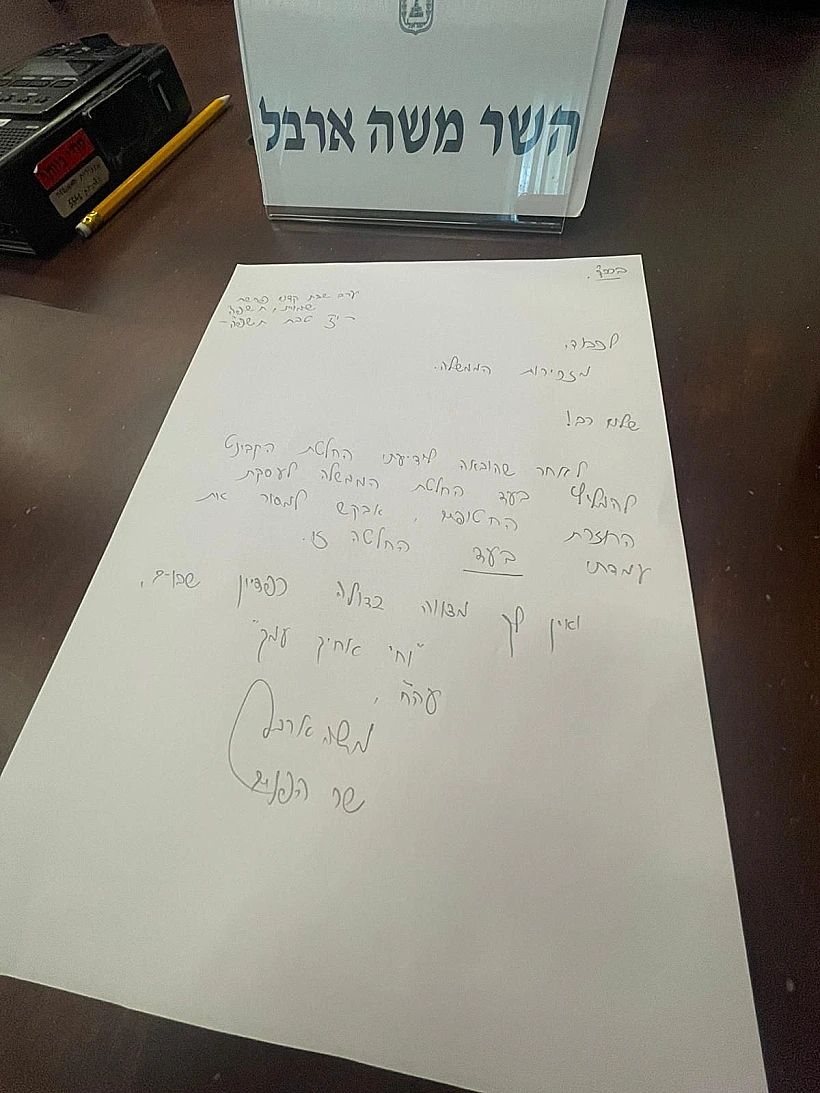 השר משה ארבל
בס״ד.
ערב שבת קודש פרשת
שמות, תשפ״ה
י״ז טבת תשפ״ה
לכבוד,
מזכירות הממשלה.
שלום רב!
לאחר שהובאה לידיעתי החלטת הקבינט
להמליץ בעד החלטת הממשלה לעסקת
החזרת החטופים, אבקש למסור את
עמדתי בעד החלטה זו.
ואין לך מצווה גדולה כפדיון שבויים,
"וחי אחיך עמך"
עה״ח,
משה ארבל
שר הפנים